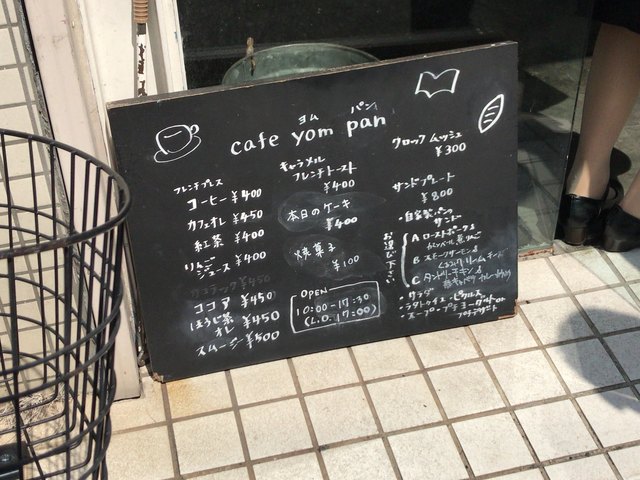 ヨム パン
cafe yom pan
フレンチプレス
コーヒー ¥400
カフェオレ ¥450
紅茶 ¥400
りんご
ジュース ¥400
ココア ¥450
ほうじ茶
オレ ¥450
スムージー ¥500
キャラメル
フレンチトースト
¥400
本日のケーキ
¥400
焼菓子
¥100
OPEN
10:00-17:30
(L.O. 17:00)
クロックムッシュ
¥300
サンドプレート
¥800
・自家製パンの
サンド
お選び下さい
A ローストポーク&
B スモークサーモン&
C タンドリーチキン&
・サラダ
・ラタトゥイユ・ピクルス
・スープ・プチヨーグルト